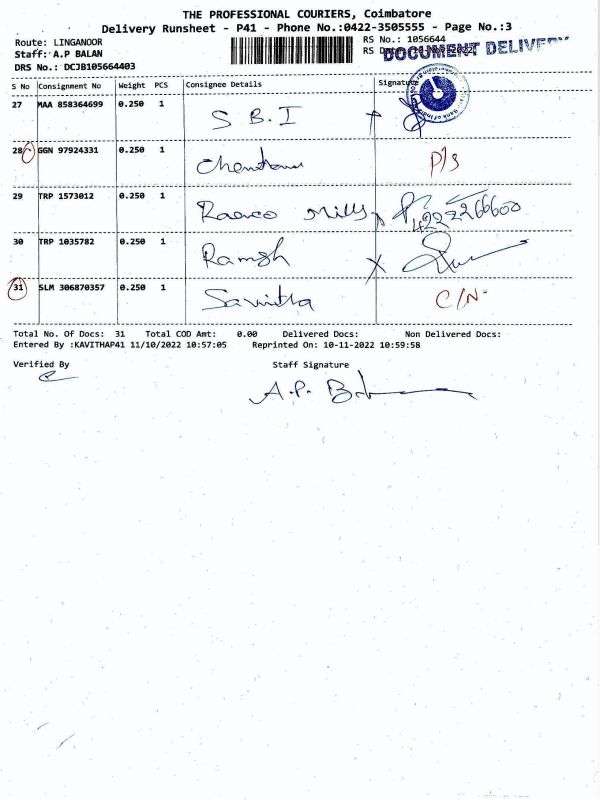 THE PROFESSIONAL COURIERS, Coimbatore
Delivery Runsheet - P41 - Phone No.:0422-3505555 - Page No.:3
Route: LINGANOOR RS No.: 1056644
Staff: A.P BALAN RS
DOCUMENT DELIVERY
DRS No.: DCJB105664403
S No Consignment No Weight PCS Consignee Details Signature
27 MAA 858364699 0.250 1 S.B.I
28 GGN 97924331 0.250 1 P/s
29 TRP 1573012 0.250 1 Mills
30 TRP 1035782 0.250 1 Ramsh X
31 SLM 306870357 0.250 1 Savitha C/N.
Total No. Of Docs: 31 Total COD Amt: 0.00 Delivered Docs: Non Delivered Docs:
Entered By :KAVITHAP41 11/10/2022 10:57:05 Reprinted On: 10-11-2022 10:59:58
Verified By Staff Signature
A.P.